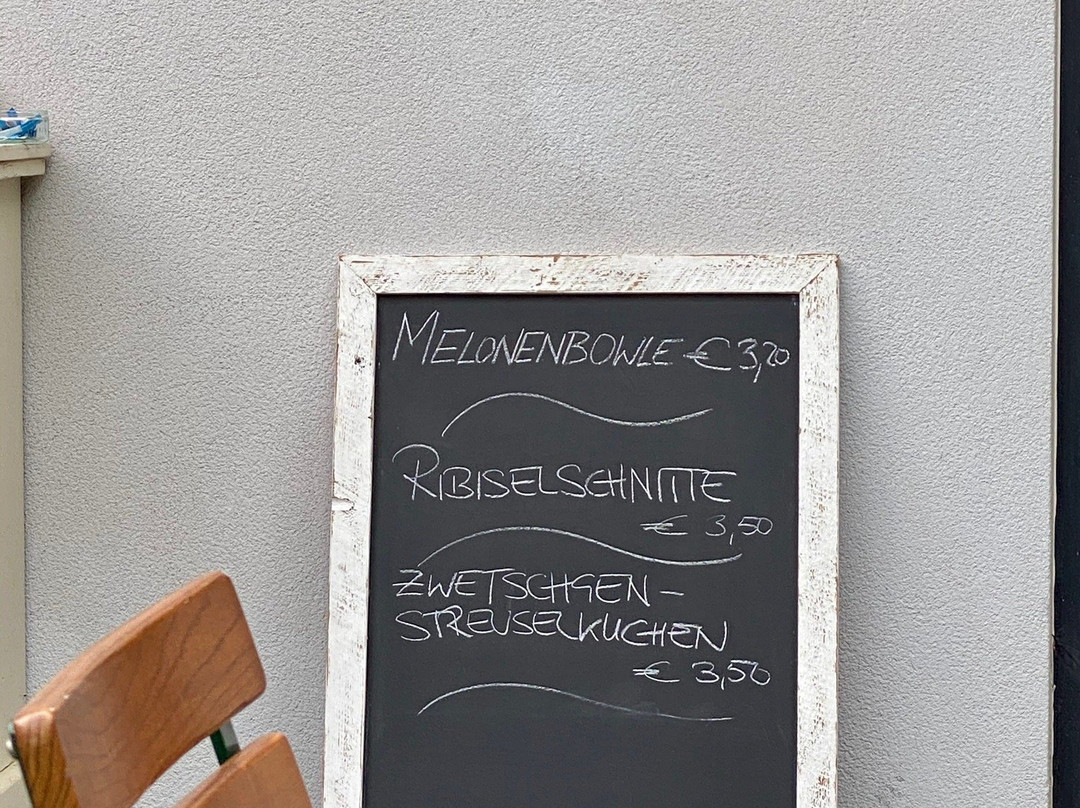 MELONENBOWLE € 3,20
RIBISELSCHNITTE
€ 3,50
ZWETSCHGEN-
STREUSELKUCHEN
€ 3,50